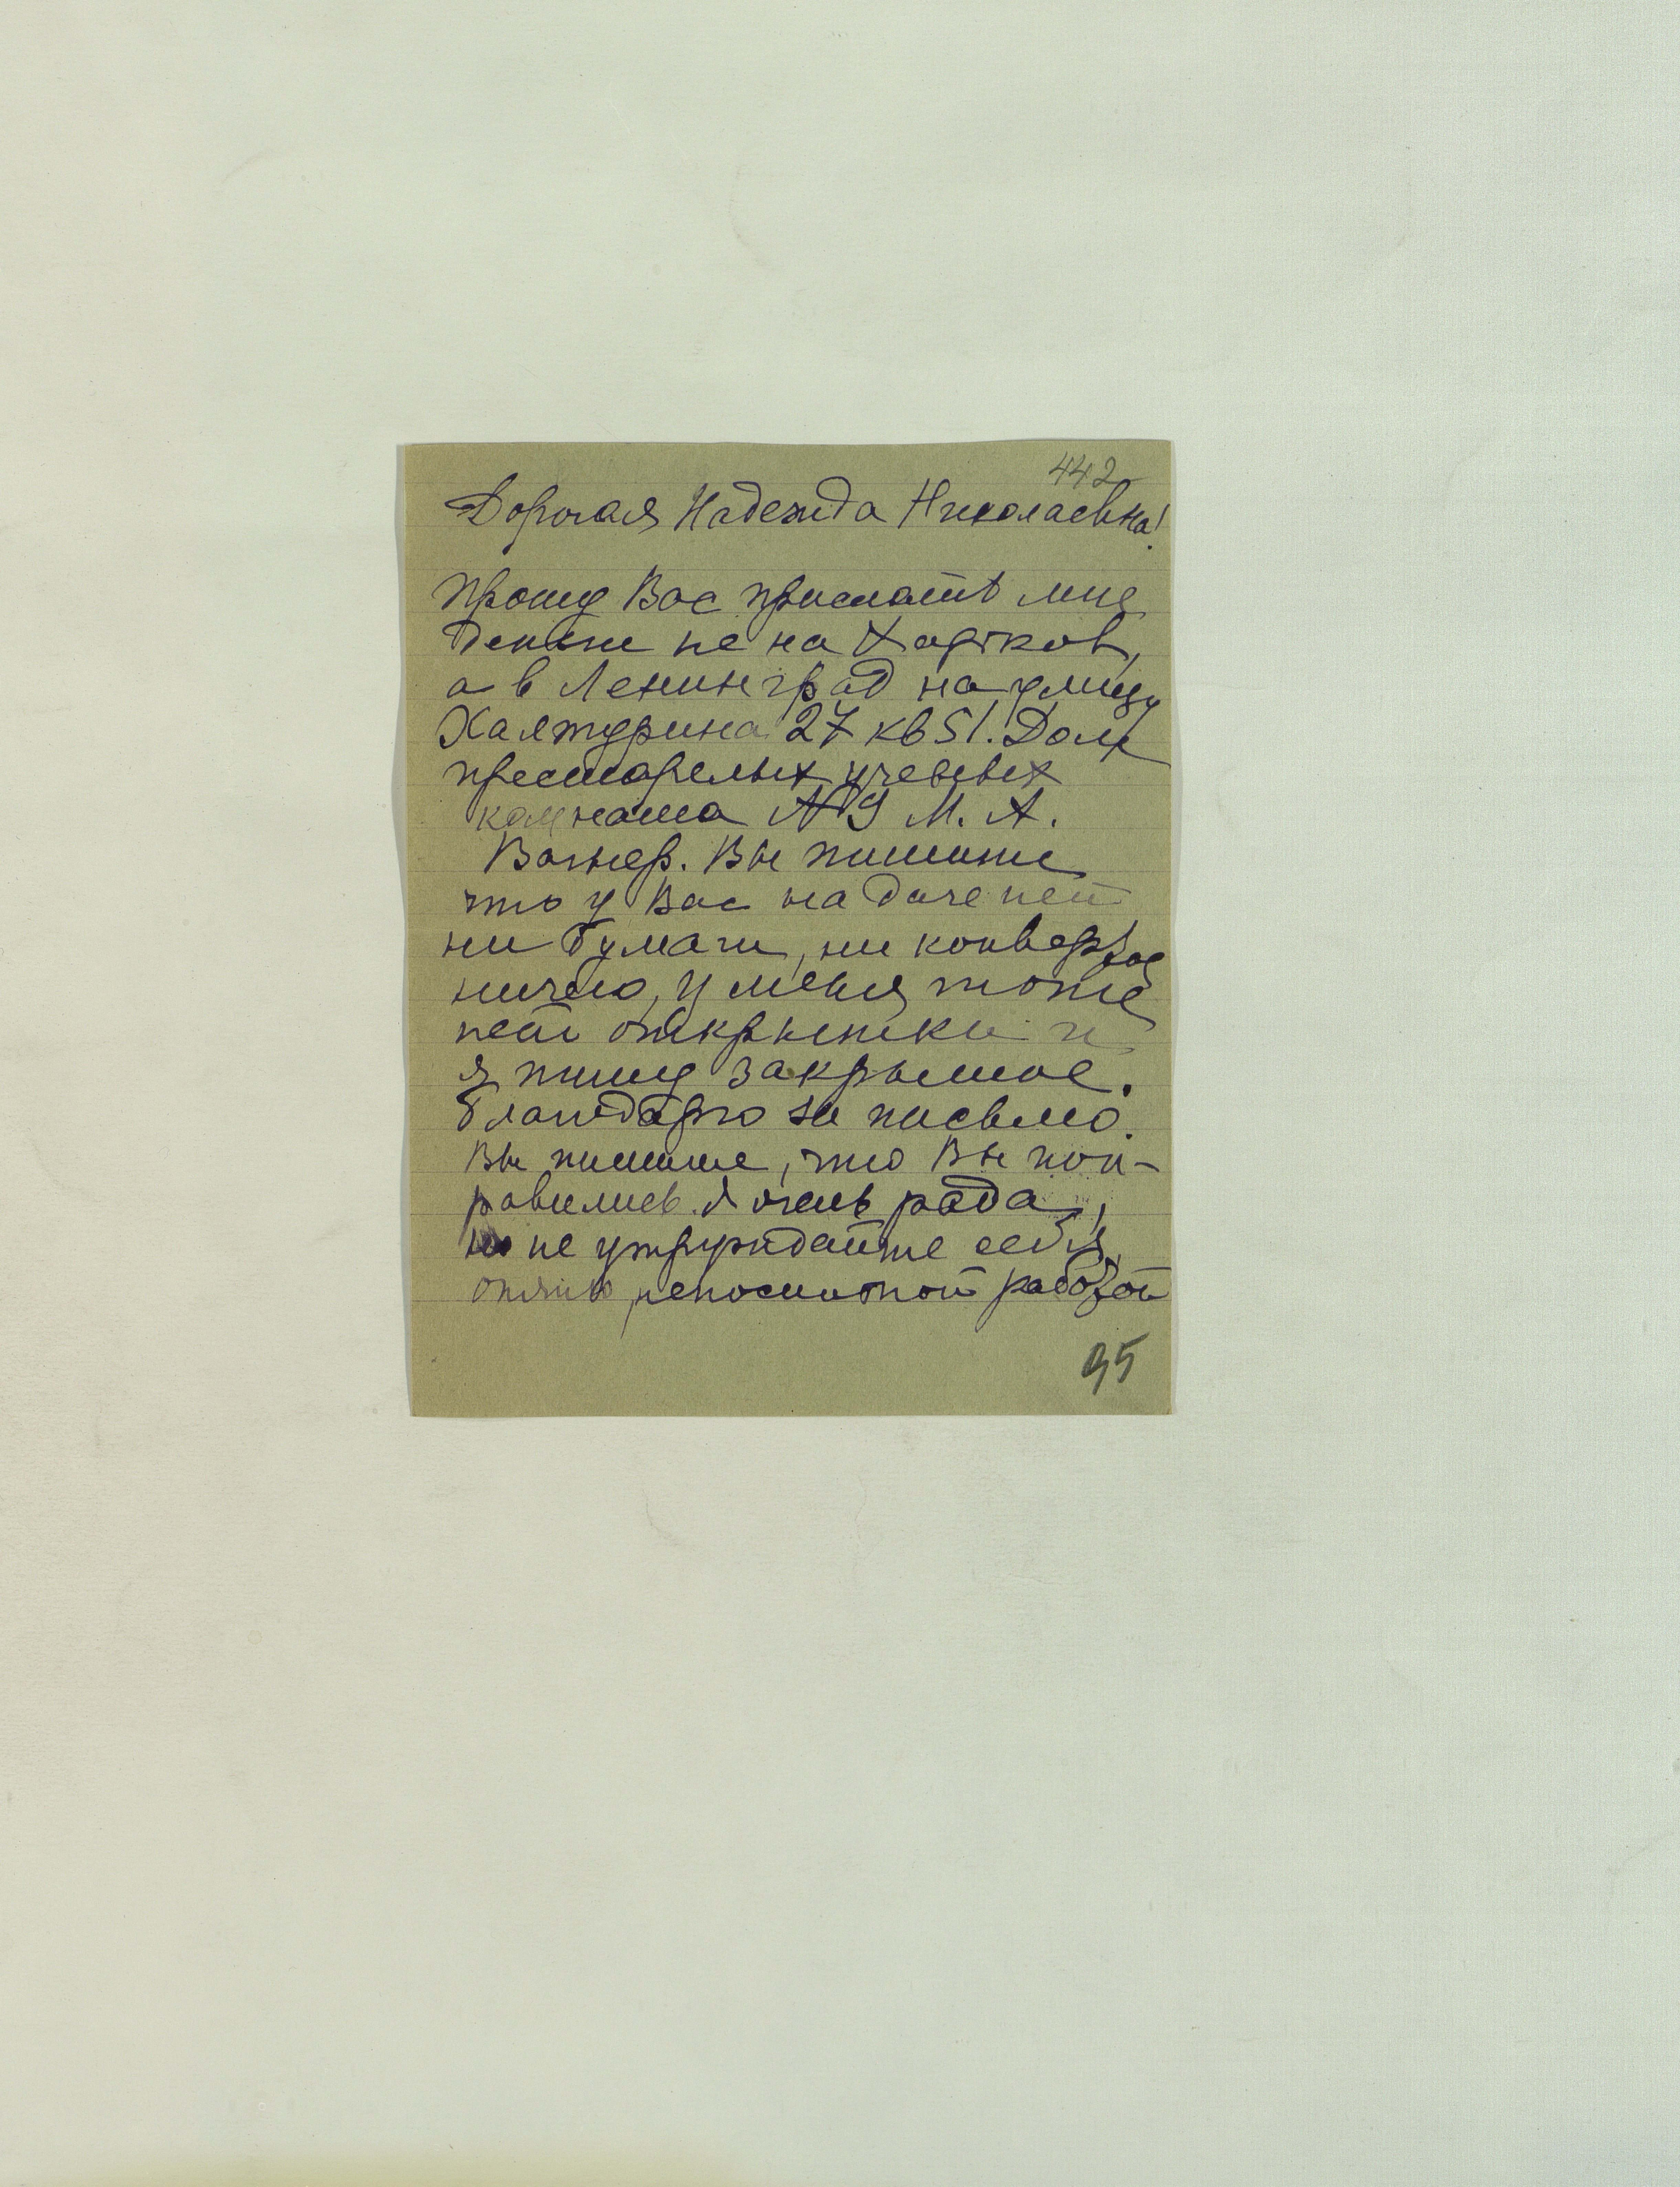 442
Дорогая Надежда Николаевна!
Прошу Вас прислать мне
деньги не на Харьков,
а в Ленинград на улицу
Халтурина 27 кв 51. Дом
престарелых ученых
комната № 9 М. А.
Вагнер. Вы пишите
что у Вас на даче нет
ни бумаги, ни конвертов
ничего, у меня тоже
нет открытки и
я пишу закрытое.
благодарю за письмо.
Вы пишите, что Вы поп-
равились. Я очень рада,
но не утруждайте себя
опять непосильной работой
95